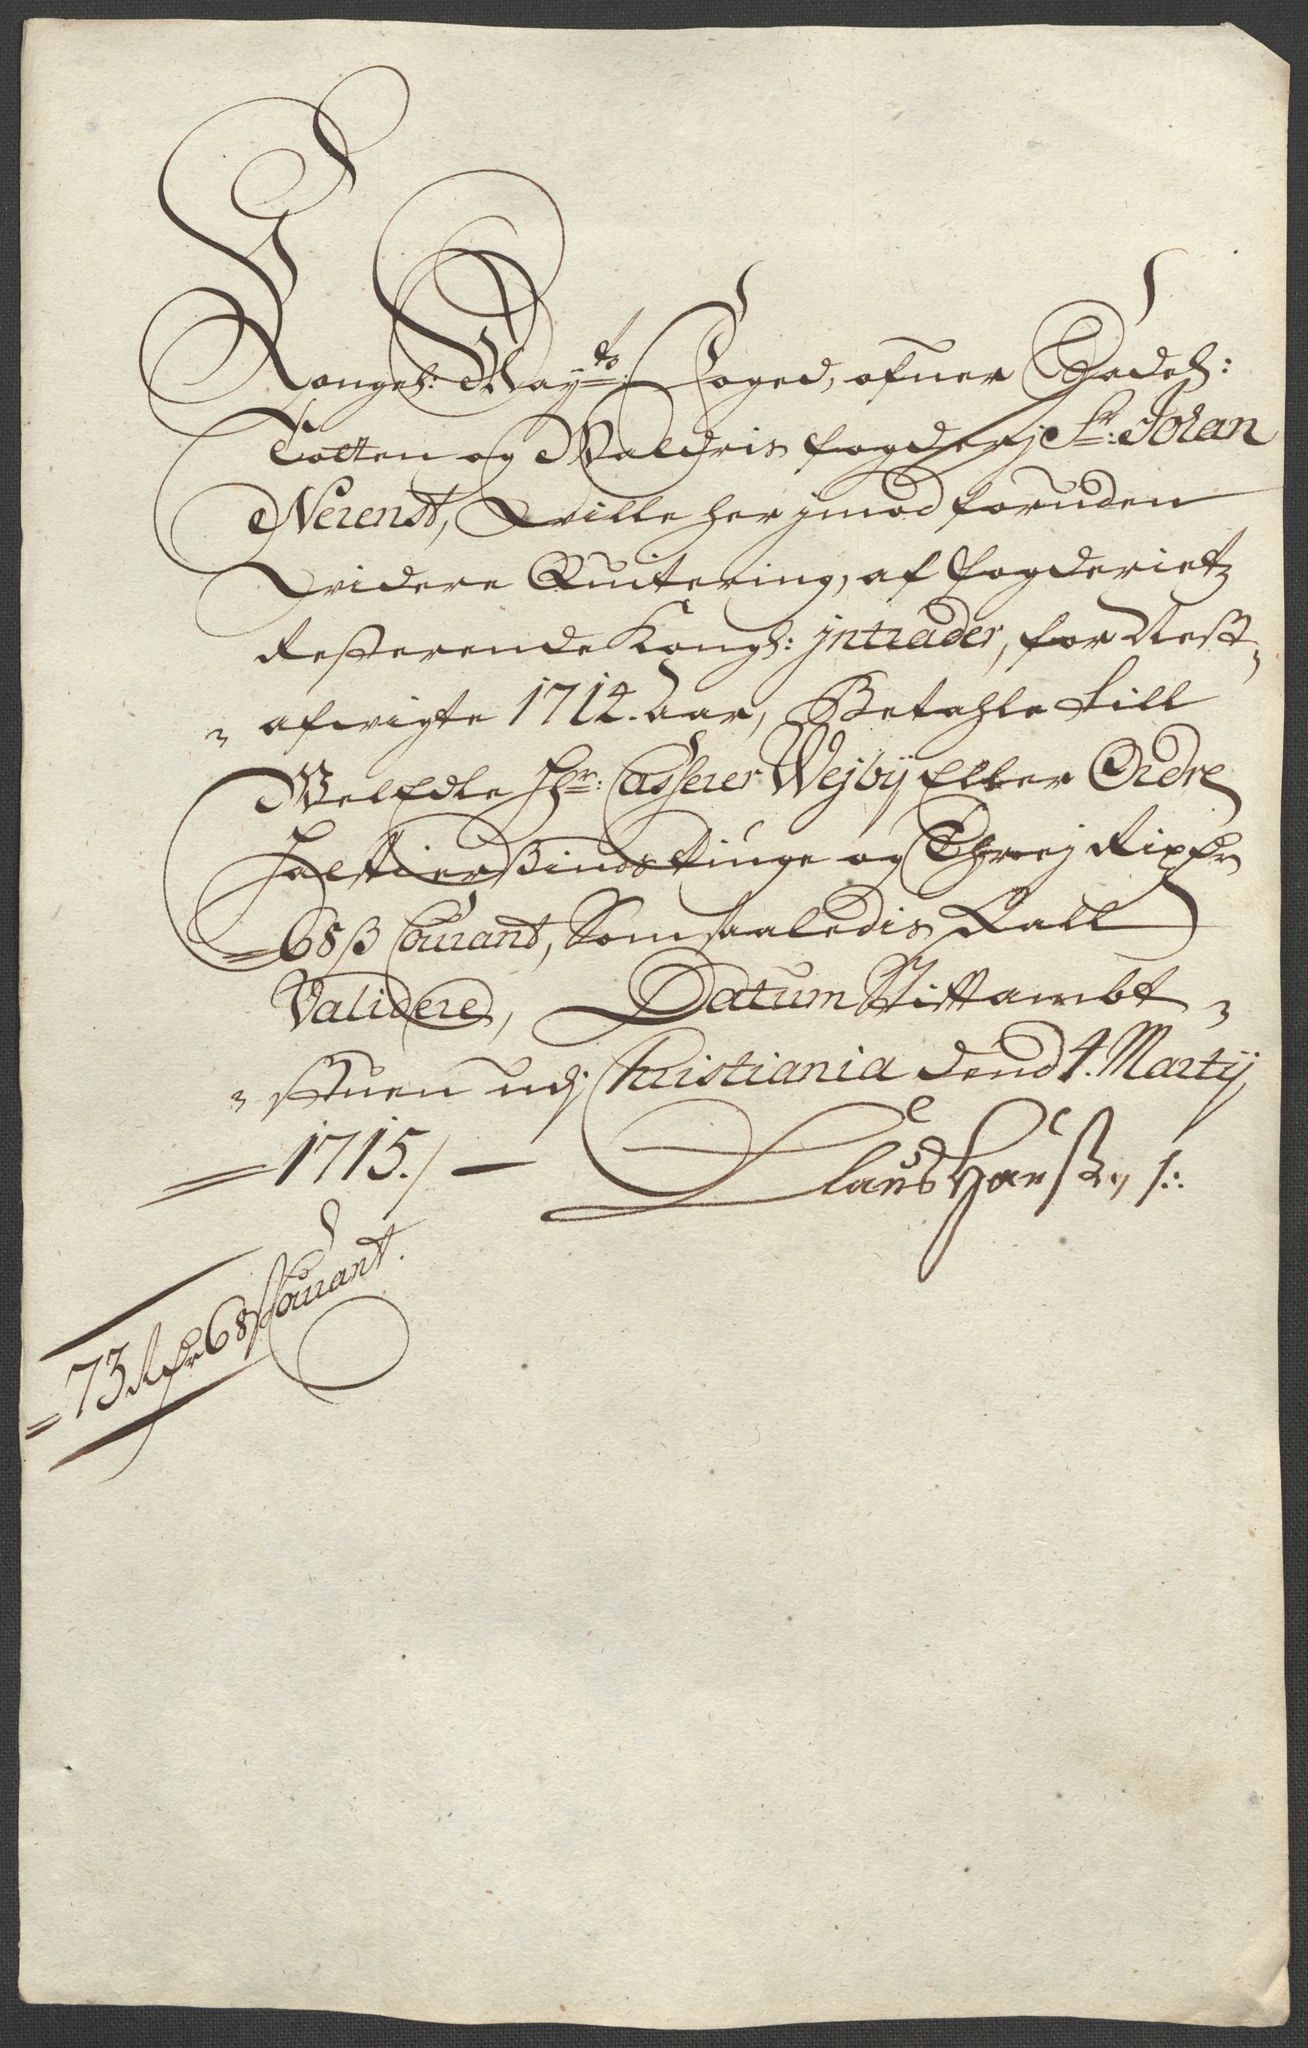 Kongel: May.ts Foged, ofuer Hadel:
Totten og Waldris fogderj Sr: Johan
Nerenst, Wille her jmod foruden
Widere Quitering, af fogderietz
Resterende Kongl: jntrader, for Nest-
afvigte 1714. Aar, Betahle till
WelEdle Hr: Casserer Wejbÿ Eller Ordre
Halftierßindstiuge og Threj Rixdr
68 ß Courant, Som saaledis Skall
Validere, Datum Stiftambt-
stuen udj Christiania dend 4. Martij
1715./
Claus Hanß
73 Rdr 68 ß Courant.